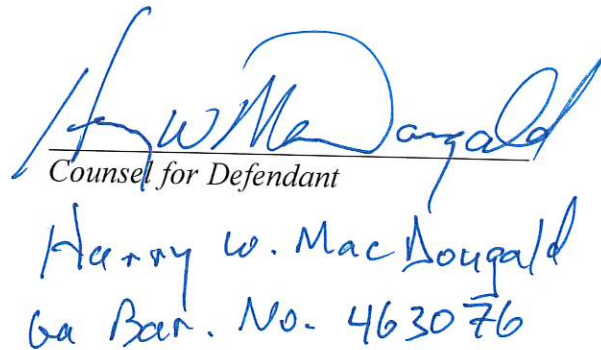 Harry W MacDougald
Counsel for Defendant
Harry W. MacDougald
Ga Bar. No. 463076